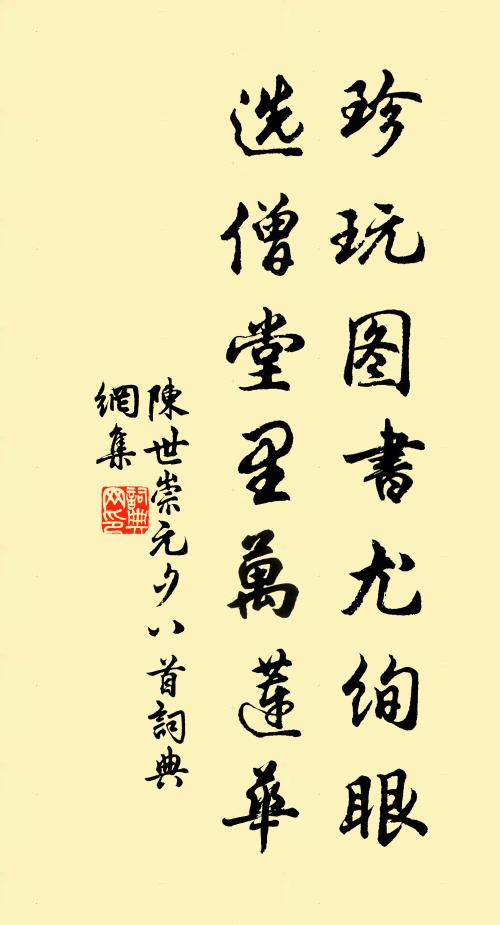 珍玩图書尤絢眼
选僧堂里萬蓮華
陳世崇元夕八首詞典
網集
詞典网印